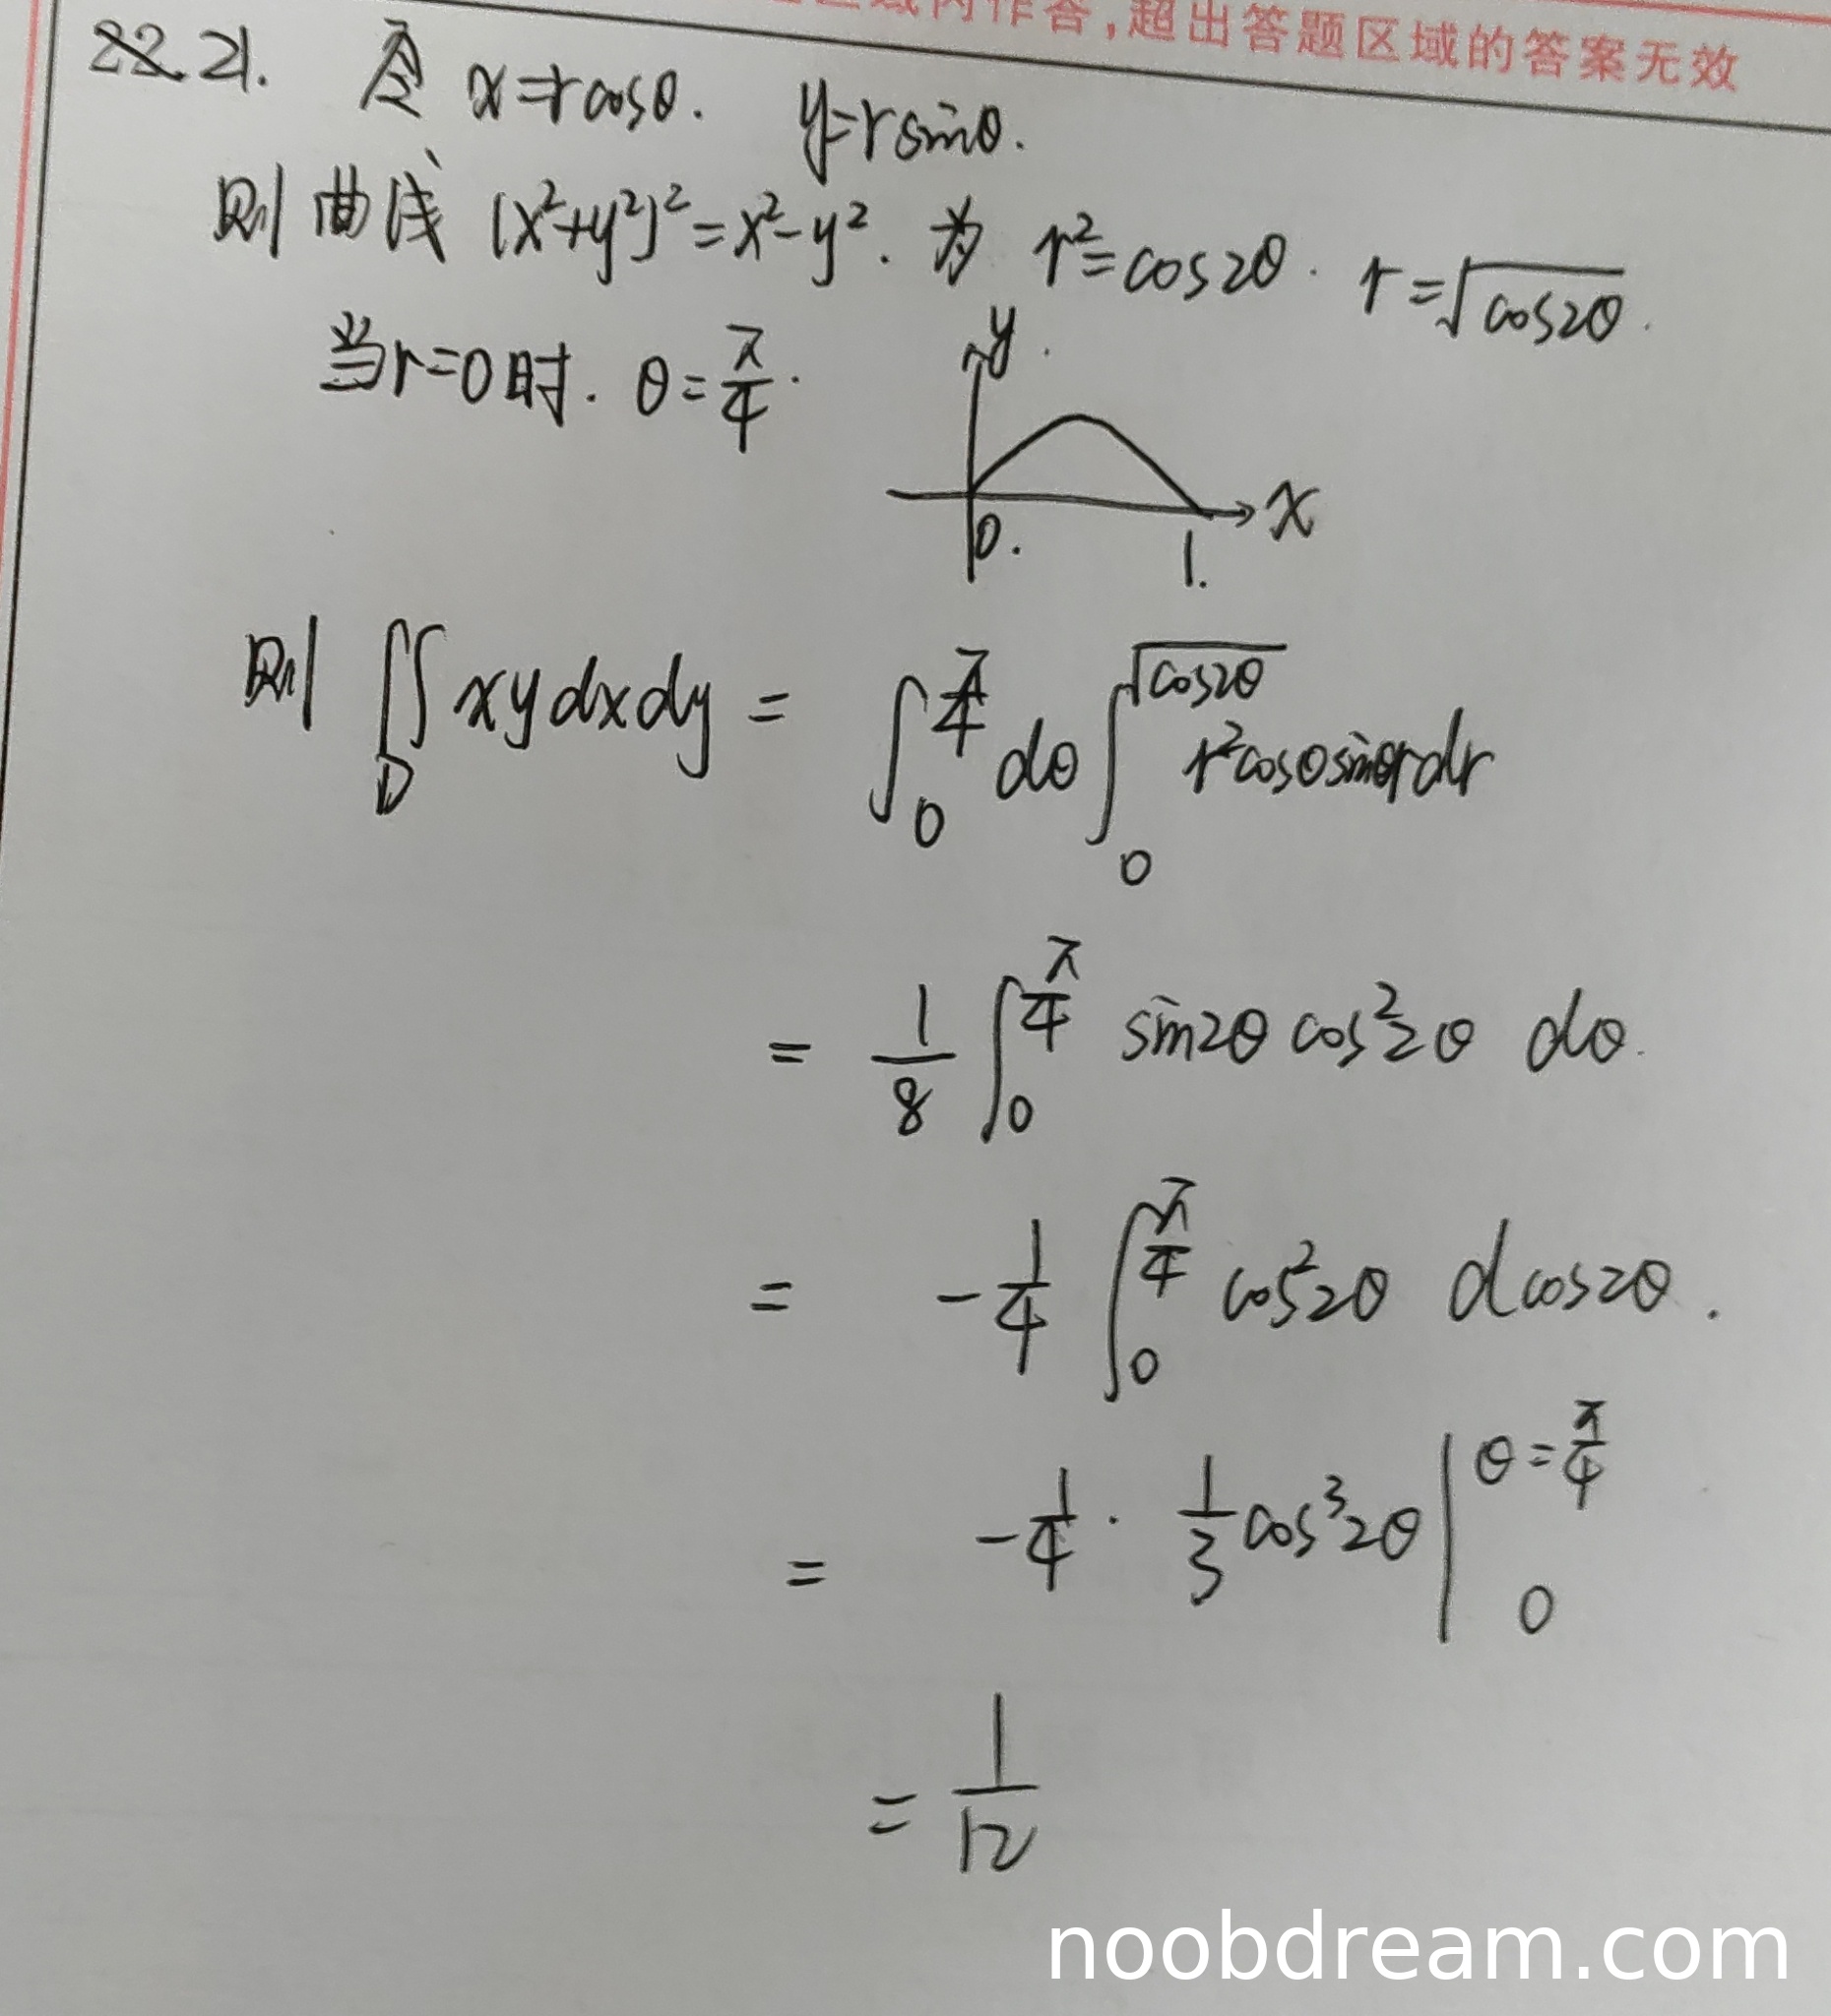 区域内作答,超出答题区域的答案无效
21. 令 x=rcosθ. y=rsinθ.
则曲线 (x²+y²)²=x²-y². 为 r²=cos2θ. r=√cos2θ.
当r=0时. θ=π/4.
y
x
0. 1.
则 ∬_D xydxdy = ∫_0^{π/4} dθ ∫_0^{√cos2θ} r²cosθsinθrdr
= 1/8 ∫_0^{π/4} sin2θ cos²2θ dθ.
= -1/4 ∫_0^{π/4} cos²2θ dcos2θ.
= -1/4 · 1/3 cos³2θ |_0^{θ=π/4}
= 1/12
noobdream.com